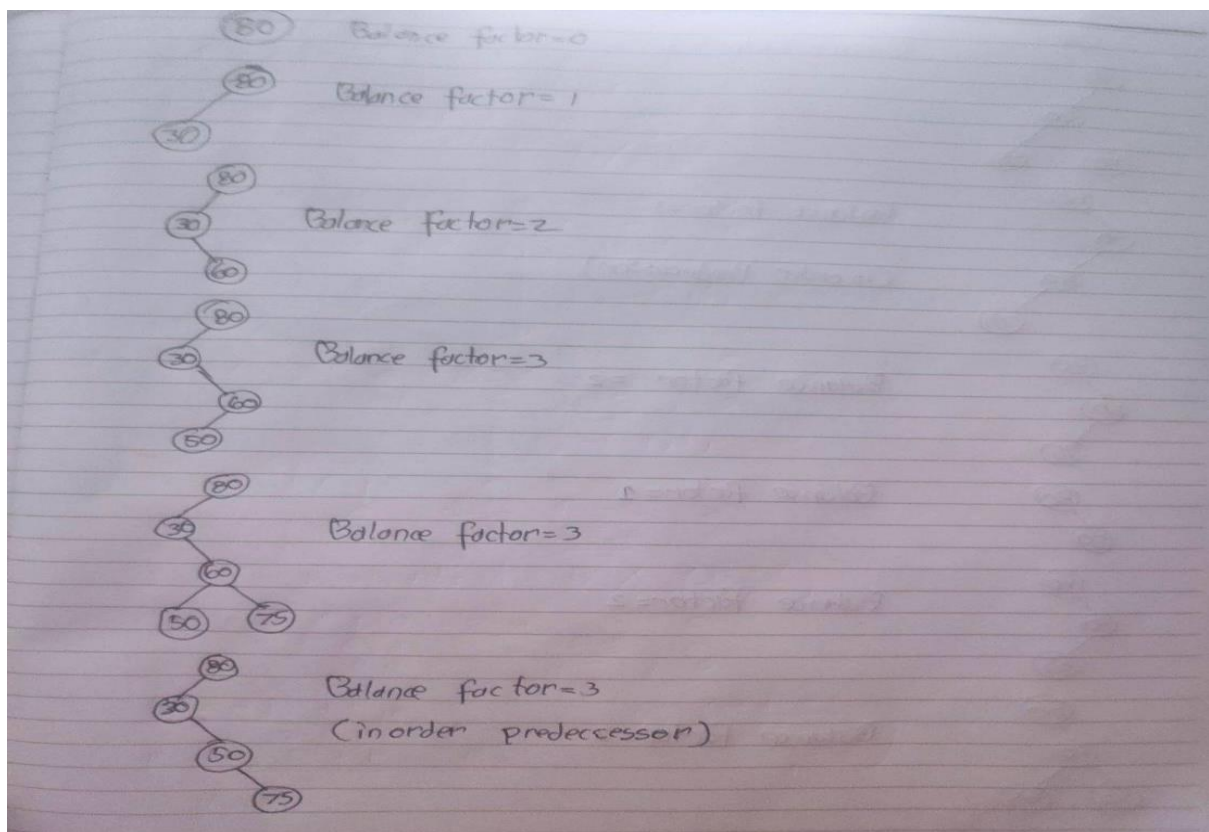 80 Balance factor=0
80 Balance factor=1
30
80
30 Balance factor=2
60
80
30 Balance factor=3
60
50
80
30 Balance factor=3
60
50 75
80 Balance factor=3
30 (inorder predeccessor)
50
75